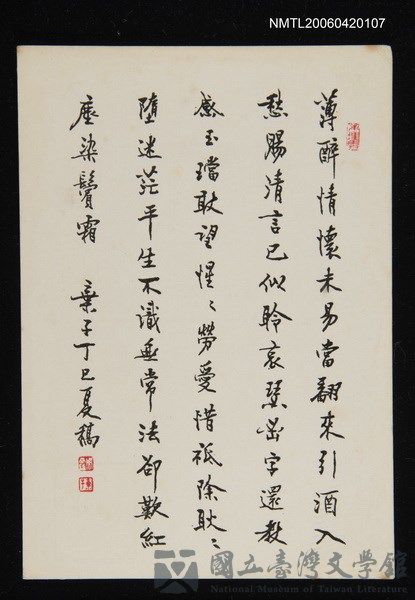 NMTL20060420107
薄醉情懷未易當翻來引酒入
愁腸清言已似聆哀瑟出字還教
感玉璫耿望惺〻勞愛惜祇除耿〻
墮迷茫平生不識無常法卻歎紅
塵染鬢霜 棄子丁巳夏稿
國立臺灣文學館
National Museum of Taiwan Literature